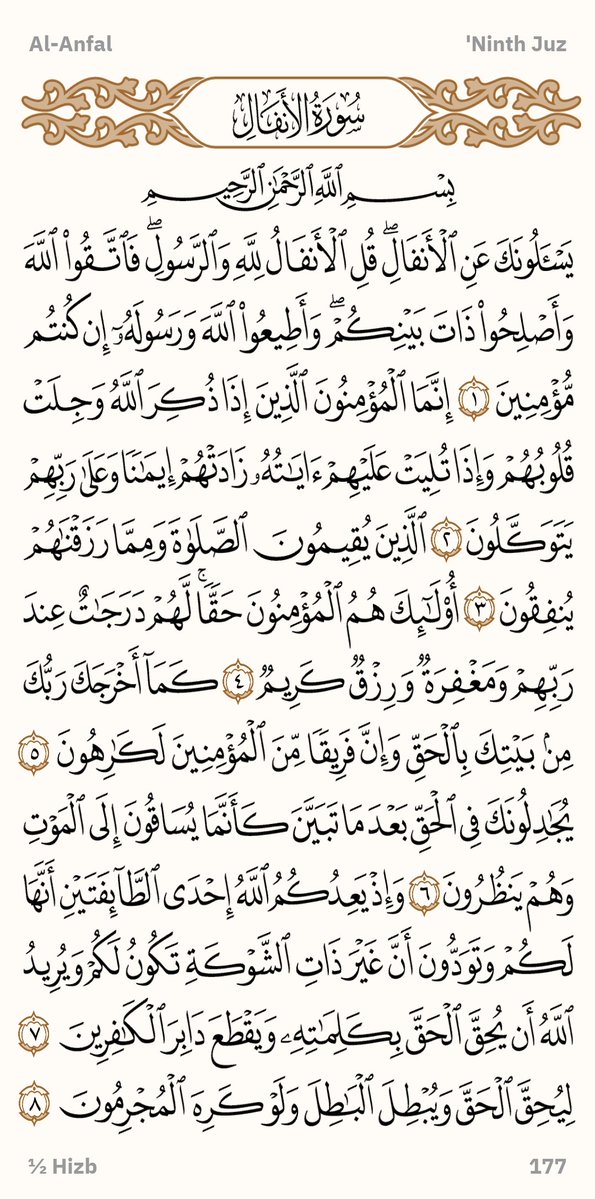 Al-Anfal
'Ninth Juz
سُورَةُ الأَنفَالِ
بِسۡمِ ٱللَّهِ ٱلرَّحۡمَٰنِ ٱلرَّحِيمِ
يَسۡـَٔلُونَكَ عَنِ ٱلۡأَنفَالِۖ قُلِ ٱلۡأَنفَالُ لِلَّهِ وَٱلرَّسُولِۖ فَٱتَّقُواْ ٱللَّهَ
وَأَصۡلِحُواْ ذَاتَ بَيۡنِكُمۡۖ وَأَطِيعُواْ ٱللَّهَ وَرَسُولَهُۥٓ إِن كُنتُم
مُّؤۡمِنِينَ ١ إِنَّمَا ٱلۡمُؤۡمِنُونَ ٱلَّذِينَ إِذَا ذُكِرَ ٱللَّهُ وَجِلَتۡ
قُلُوبُهُمۡ وَإِذَا تُلِيَتۡ عَلَيۡهِمۡ ءَايَٰتُهُۥ زَادَتۡهُمۡ إِيمَٰنٗا وَعَلَىٰ رَبِّهِمۡ
يَتَوَكَّلُونَ ٢ ٱلَّذِينَ يُقِيمُونَ ٱلصَّلَوٰةَ وَمِمَّا رَزَقۡنَٰهُمۡ
يُنفِقُونَ ٣ أُوْلَٰٓئِكَ هُمُ ٱلۡمُؤۡمِنُونَ حَقّٗاۚ لَّهُمۡ دَرَجَٰتٌ عِندَ
رَبِّهِمۡ وَمَغۡفِرَةٞ وَرِزۡقٞ كَرِيمٞ ٤ كَمَآ أَخۡرَجَكَ رَبُّكَ
مِنۢ بَيۡتِكَ بِٱلۡحَقِّ وَإِنَّ فَرِيقٗا مِّنَ ٱلۡمُؤۡمِنِينَ لَكَٰرِهُونَ ٥
يُجَٰدِلُونَكَ فِي ٱلۡحَقِّ بَعۡدَ مَا تَبَيَّنَ كَأَنَّمَا يُسَاقُونَ إِلَى ٱلۡمَوۡتِ
وَهُمۡ يَنظُرُونَ ٦ وَإِذۡ يَعِدُكُمُ ٱللَّهُ إِحۡدَى ٱلطَّآئِفَتَيۡنِ أَنَّهَا
لَكُمۡ وَتَوَدُّونَ أَنَّ غَيۡرَ ذَاتِ ٱلشَّوۡكَةِ تَكُونُ لَكُمۡ وَيُرِيدُ
ٱللَّهُ أَن يُحِقَّ ٱلۡحَقَّ بِكَلِمَٰتِهِۦ وَيَقۡطَعَ دَابِرَ ٱلۡكَٰفِرِينَ ٧
لِيُحِقَّ ٱلۡحَقَّ وَيُبۡطِلَ ٱلۡبَٰطِلَ وَلَوۡ كَرِهَ ٱلۡمُجۡرِمُونَ ٨
½ Hizb
177